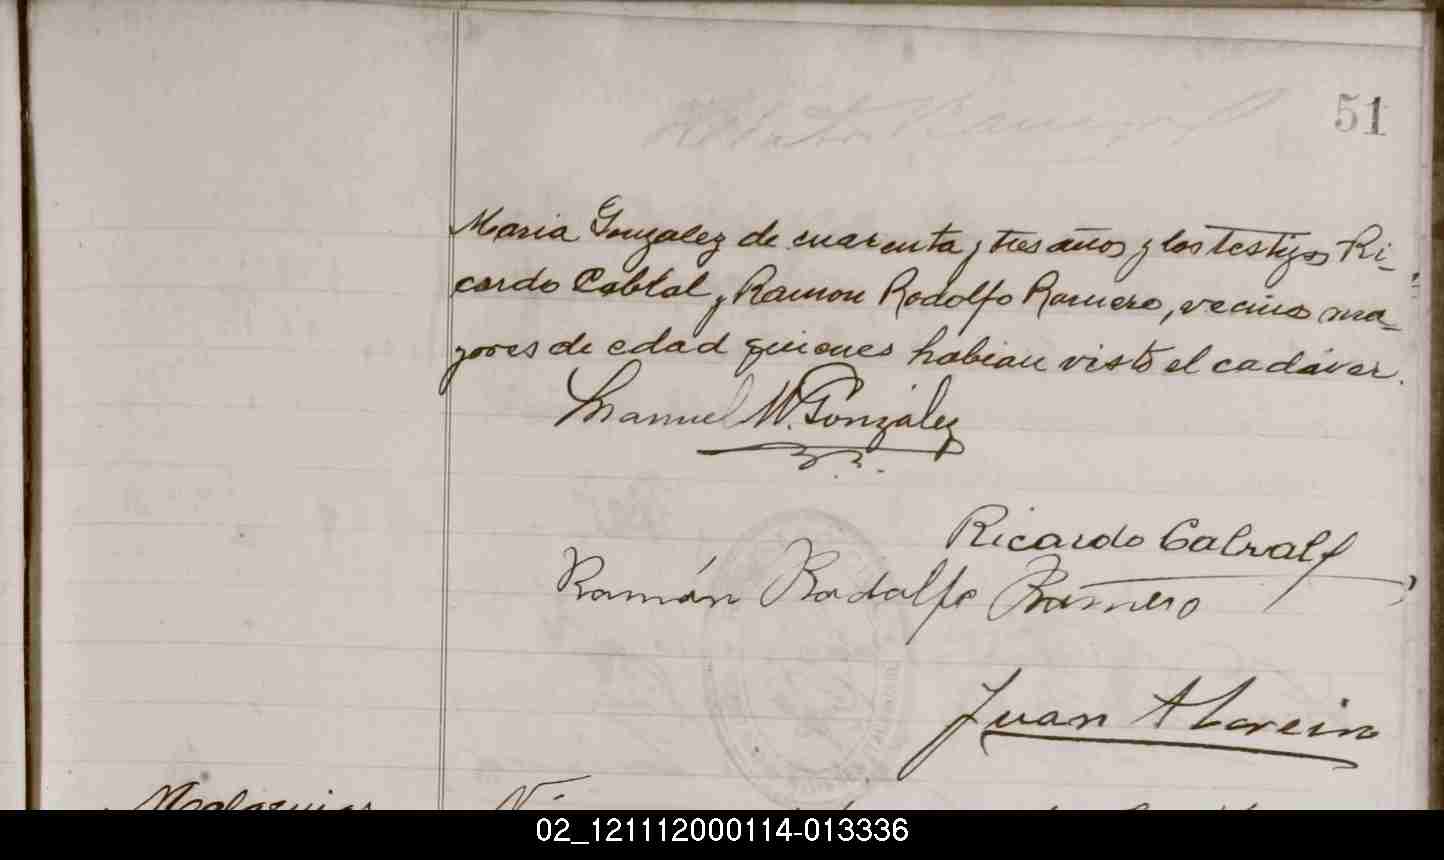 51
Maria Gonzalez de cuarenta y tres años y los testigos Ri-
cardo Cabral y Ramon Rodolfo Romero, vecinos ma-
yores de edad quienes habian visto el cadáver.
Manuel W. González
Ricardo Cabral
Ramón Rodolfo Romero
Juan A
Malaquias
02_121112000114-013336